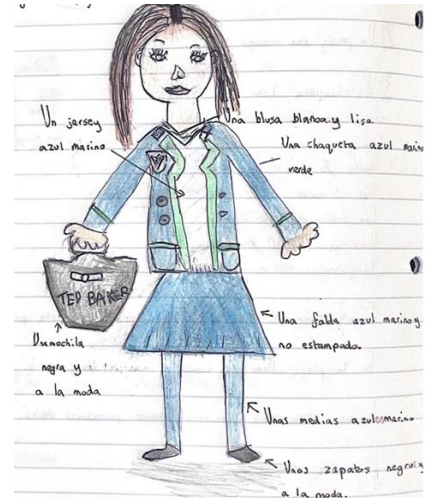 Un jersey
azul marino
Una blusa blanca y lisa
Una chaqueta azul marino
verde
TED BAKER
mochila
negra y
a la moda
Una falda azul marino y
no estampado.
Unas medias azulesmarino
Unos zapatos negros y
a la moda.